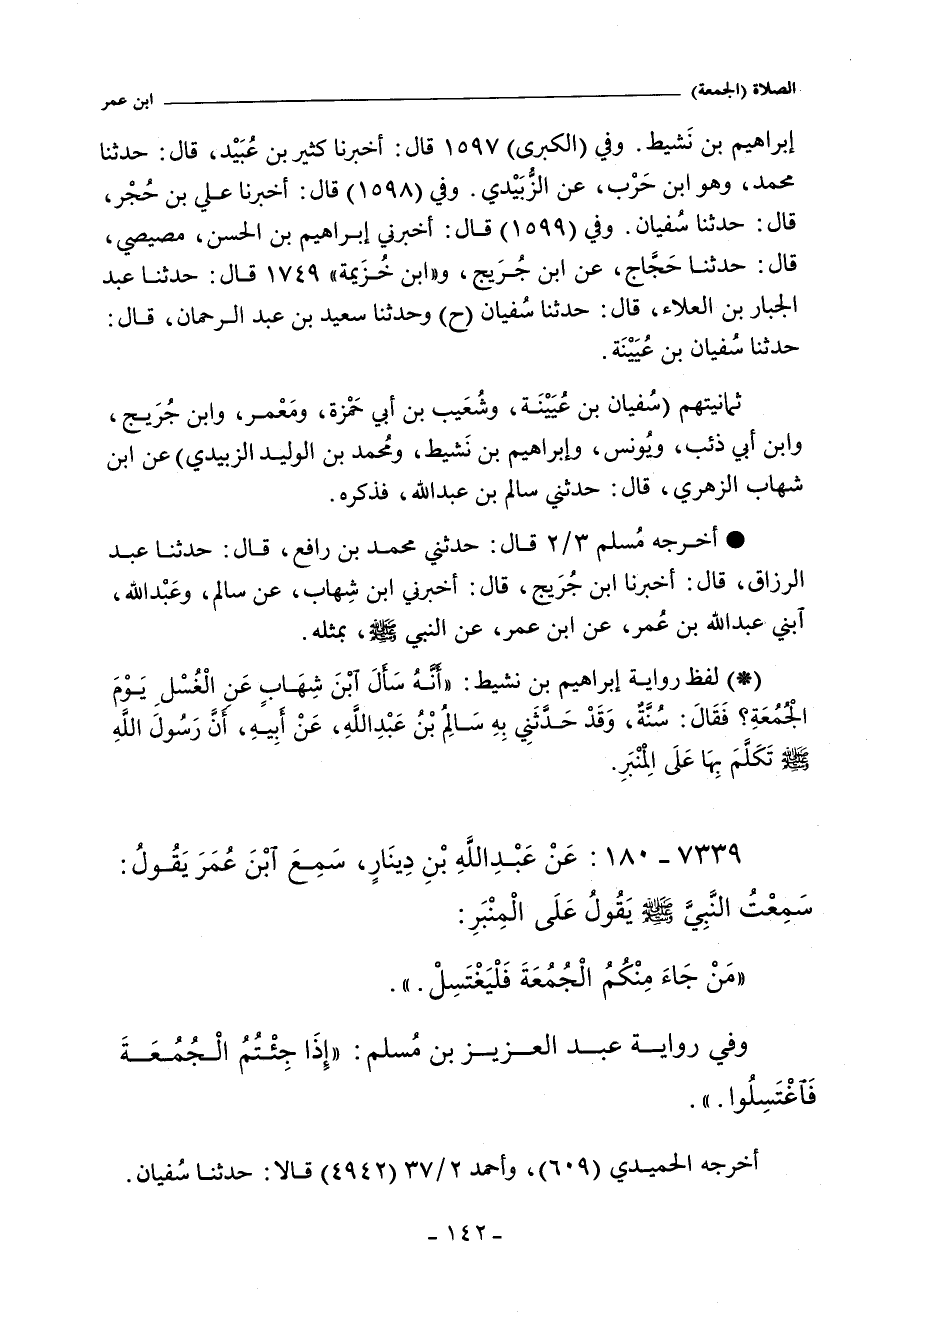 الصلاة (الجمعة) ابن عمر
إبراهيم بن نَشيط. وفي (الكبرى) ١٥٩٧ قال: أخبرنا كثير بن عُبَيْد، قال: حدثنا
محمد، وهو ابن حَرْب، عن الزُّبَيْدي. وفي (١٥٩٨) قال: أخبرنا علي بن حُجْر،
قال: حدثنا سُفيان. وفي (١٥٩٩) قال: أخبرني إبراهيم بن الحسن، مصيصي،
قال: حدثنا حَجَّاج، عن ابن جُرَيج، و«ابن خُزَيمة» ١٧٤٩ قال: حدثنا عبد
الجبار بن العلاء، قال: حدثنا سُفيان (ح) وحدثنا سعيد بن عبد الرحمان، قال:
حدثنا سُفيان بن عُيَيْنَة.
ثمانيتهم (سُفيان بن عُيَيْنَة، وشُعَيب بن أبي حَمْزة، ومَعْمر، وابن جُرَيج،
وابن أبي ذئب، ويُونس، وإبراهيم بن نَشيط، ومُحمد بن الوليد الزبيدي) عن ابن
شهاب الزهري، قال: حدثني سالم بن عبدالله، فذكره.
● أخرجه مُسلم ٢/٣ قال: حدثني محمد بن رافع، قال: حدثنا عبد
الرزاق، قال: أخبرنا ابن جُرَيج، قال: أخبرني ابن شِهاب، عن سالم، وعَبْدالله،
آبني عبدالله بن عُمر، عن ابن عمر، عن النبي ﷺ، بمثله.
(*) لفظ رواية إبراهيم بن نشيط: «أَنَّهُ سَأَلَ ٱبْنَ شِهَابٍ عَنِ الْغُسْلِ يَوْمَ
الْجُمُعَةِ؟ فَقَالَ: سُنَّةٌ، وَقَدْ حَدَّثَنِي بِهِ سَالِمُ بْنُ عَبْدِاللَّهِ، عَنْ أَبِيهِ، أَنَّ رَسُولَ اللَّهِ
ﷺ تَكَلَّمَ بِهَا عَلَى الْمِنْبَرِ.
٧٣٣٩ - ١٨٠: عَنْ عَبْدِاللَّهِ بْنِ دِينَارٍ، سَمِعَ ٱبْنَ عُمَرَ يَقُولُ:
سَمِعْتُ النَّبِيَّ ﷺ يَقُولُ عَلَى الْمِنْبَرِ:
«مَنْ جَاءَ مِنْكُمُ الْجُمُعَةَ فَلْيَغْتَسِلْ.».
وفي رواية عبد العزيز بن مُسلم: «إِذَا جِئْتُمُ الْجُمُعَةَ
فَٱغْتَسِلُوا.».
أخرجه الحميدي (٦٠٩)، وأحمد ٣٧/٢ (٤٩٤٢) قالا: حدثنا سُفيان.
- ١٤٢ -